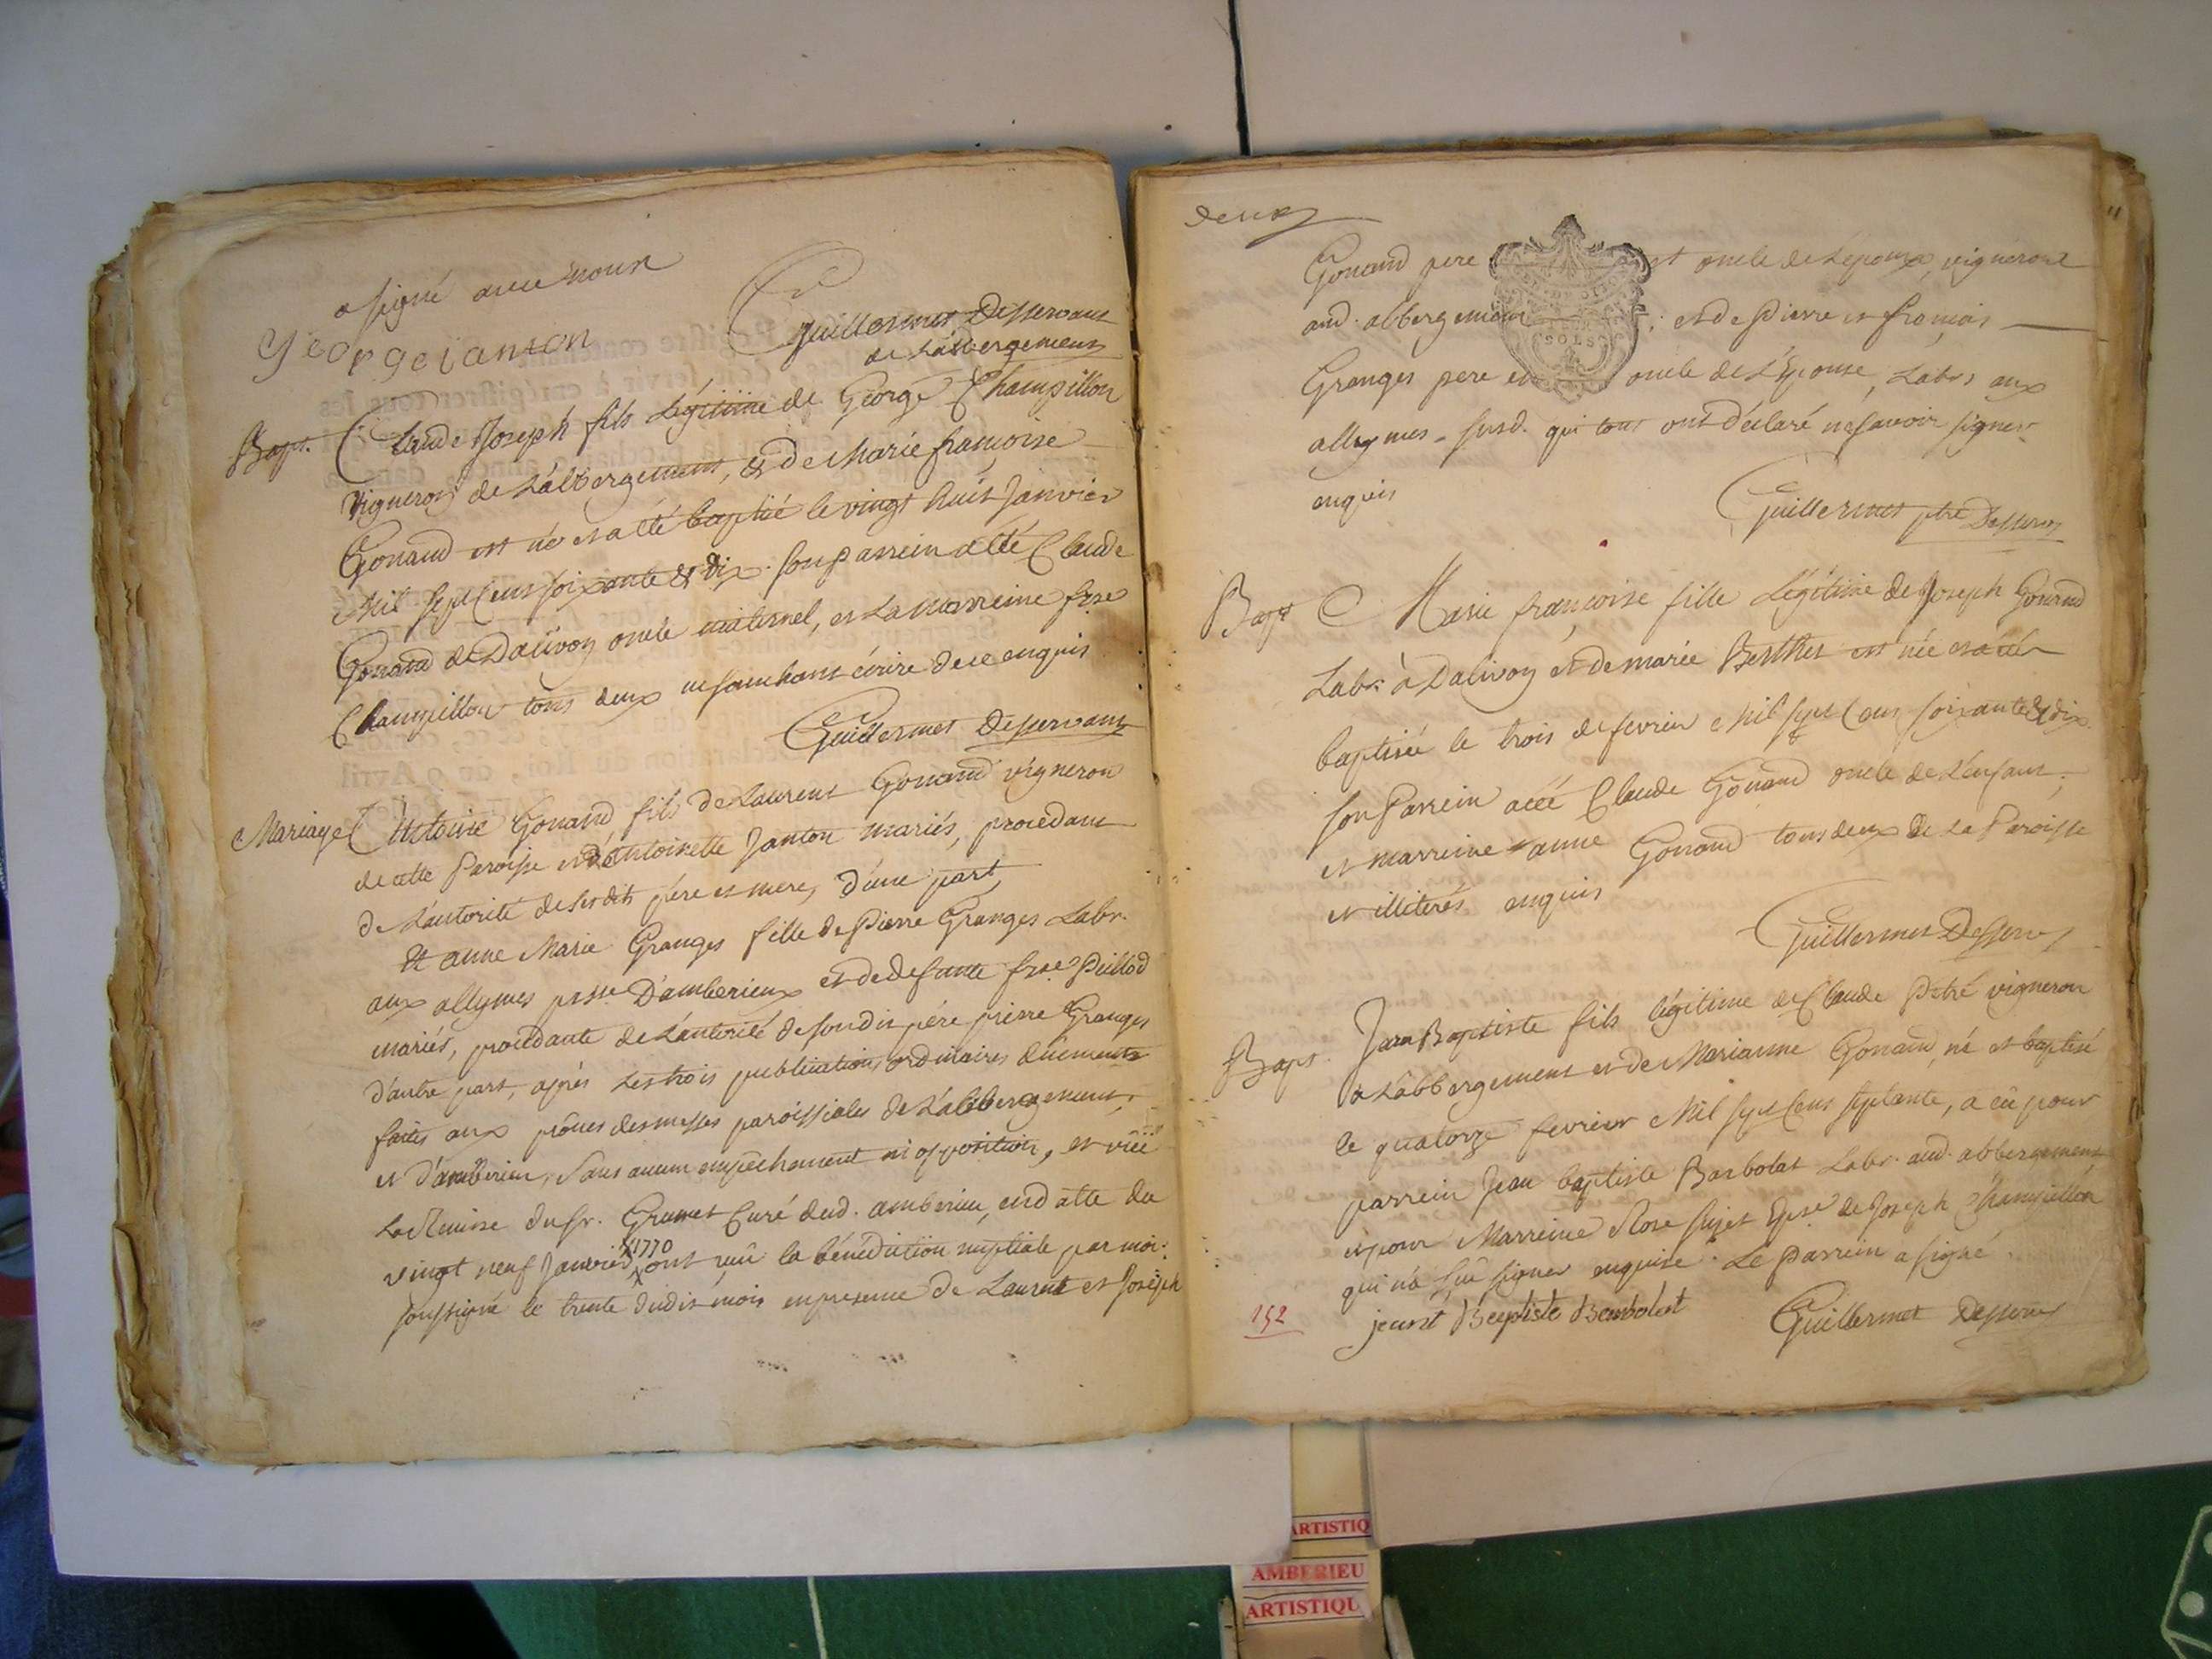 a signé avec nous
george janton
Guillermet Desservant
de L'abbergement
Bapt. Claude Joseph fils Légitime de George Champillon
Vigneron de L'abbergement, & de Marie françoise
Gonand est né et a été baptisé le vingt huit Janvier
Mil sept Cens soixante & dix. son parrein a été Claude
Gonand de Dalivoy oncle maternel, et La marreine frse
Champillon tous deux ne sachant écrire de ce enquis
Guillermet Desservant
Mariage Antoine Gonand fils de Laurent Gonand vigneron
de cette Paroisse et d'Antoinette Janton mariés, procedant
de L'autorité de sesdits père et mere, d'une part,
Et anne Marie Granges fille de Pierre Granges Labr.
aux allymes psse D'amberieux et de defunte frse Peillod
mariés, procedante de L'autorité de sondit père pierre Granges
d'autre part, après Les trois publications ordinaires düement
faites aux prônes des messes paroissiales de L'abbergement,
et d'amberieu, sans aucun empêchement ni opposition, et vüe
La Remise du sr. Grumet Curé dud. amberieu, en datte du
vingt neuf Janvier 1770 ont reçû la bénédiction nuptiale par moi
soussigné le trente dudit mois en presence de Laurent et Joseph
deux
Gonand pere et oncle de L'époux, vignerons
aud. abbergement ; et de Pierre et françois
Granges pere et oncle de L'Epouse, Labrs aux
allymes susd. qui tous ont déclaré ne savoir signer
enquis
SOLS
Guillermet ptre Desserv
Bapt Marie françoise fille Légitime de Joseph Gonand
Labr. à Dalivoy et de marie Berthet est née et a été
baptisée le trois de fevrier Mil sept Cens soixante & dix.
son Parrein a été Claude Gonand oncle de L'enfant,
et marreine anne Gonand tous deux de La Paroisse
et illiterés enquis
Guillermet Desserv
Bapt. Jean Baptiste fils légitime de Claude Pitré vigneron
à L'abbergement et de Marianne Gonand, né et baptisé
le quatorze fevrier Mil sept Cens septante, a eû pour
parrein Jean baptiste Barbolat Labr. aud. abbergement
et pour Marreine Rose Sujet Epse de Joseph Champillon
qui n'a sçû signer enquise. Le Parrein a signé.
152
jeant Baptiste Barbolat Guillermet Desserv
ARTISTIQ
AMBERIEU
ARTISTIQU